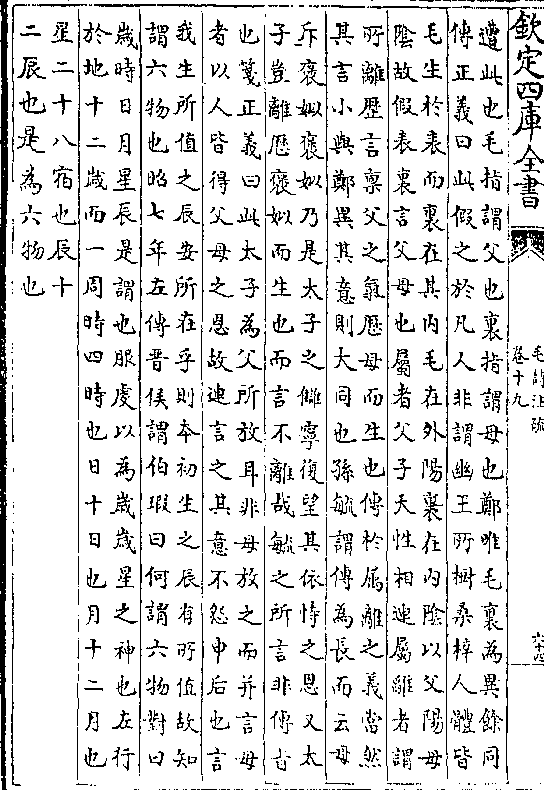 欽定四庫全書
毛詩注疏
卷十九
遭此也毛指謂父也裏指謂母也鄭唯毛裏為異餘同
傳正義曰此假之於凡人非謂幽王所樹桑梓人體皆
毛生於表而裏在其内毛在外陽裏在内陰以父陽母
陰故假表裏言父母也屬者父子天性相連屬離者謂
所離歴言稟父之氣歴母而生也傳於屬離之義當然
其言小與鄭異其意則大同也孫毓謂傳為長而云母
斥褒姒褒姒乃是太子之讎寧復望其依恃之恩又太
子豈離歴褒姒而生也而言不離哉毓之所言非傳㫖
也箋正義曰此太子為父所放耳非母放之而并言母
者以人皆得父母之恩故連言之其意不怨申后也言
我生所值之辰安所在乎則本初生之辰有所值故知
謂六物也昭七年左傳晉侯謂伯瑕曰何謂六物對曰
歲時日月星辰是謂也服䖍以為歲歲星之神也左行
於地十二歲而一周時四時也日十日也月十二月也
星二十八宿也辰十
二辰也是為六物也